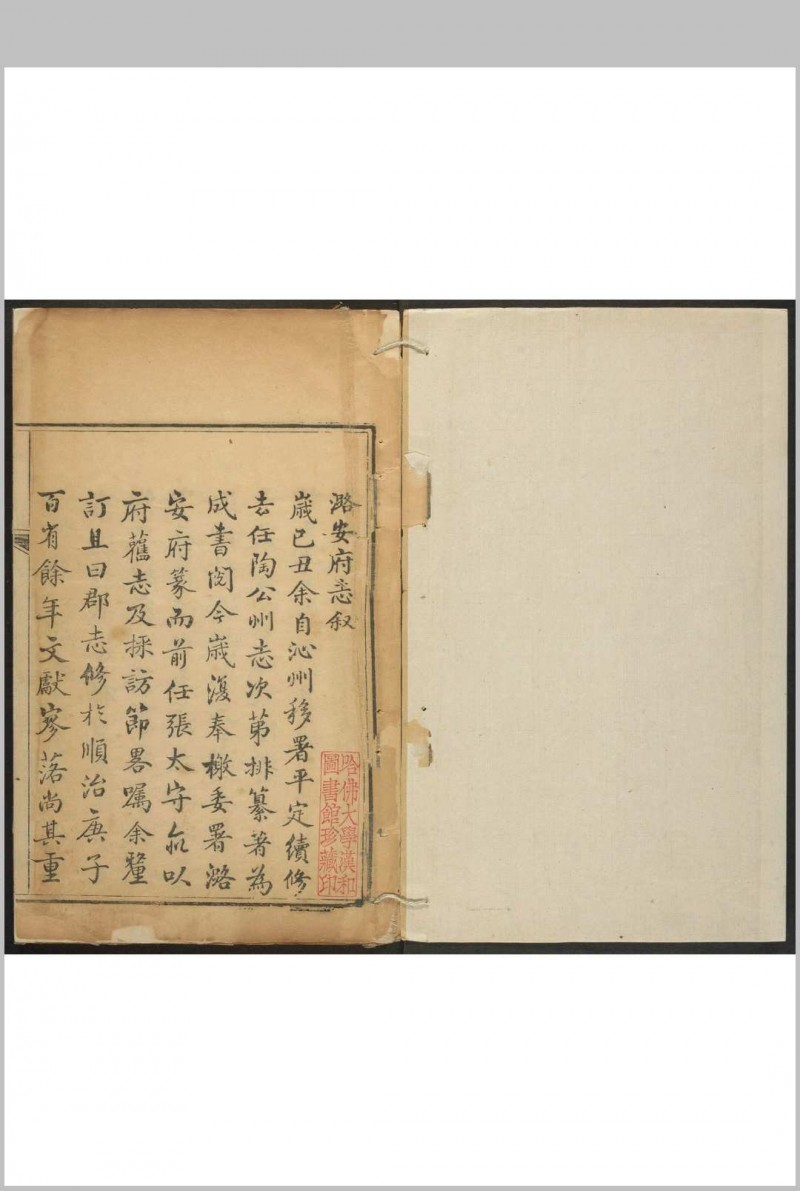 潞安府志叙
歲己丑余自沁州移署平定續修
去任陶公州志次第排纂著為
成書閲今歲復奉檄委署潞
安府篆而前任張太守氶以
府舊志及採訪節畧嘱余釐
訂且曰郡志修於順治庚子
百有餘年文獻寥落尚其重
哈佛大學漢和
圖書館珍藏印